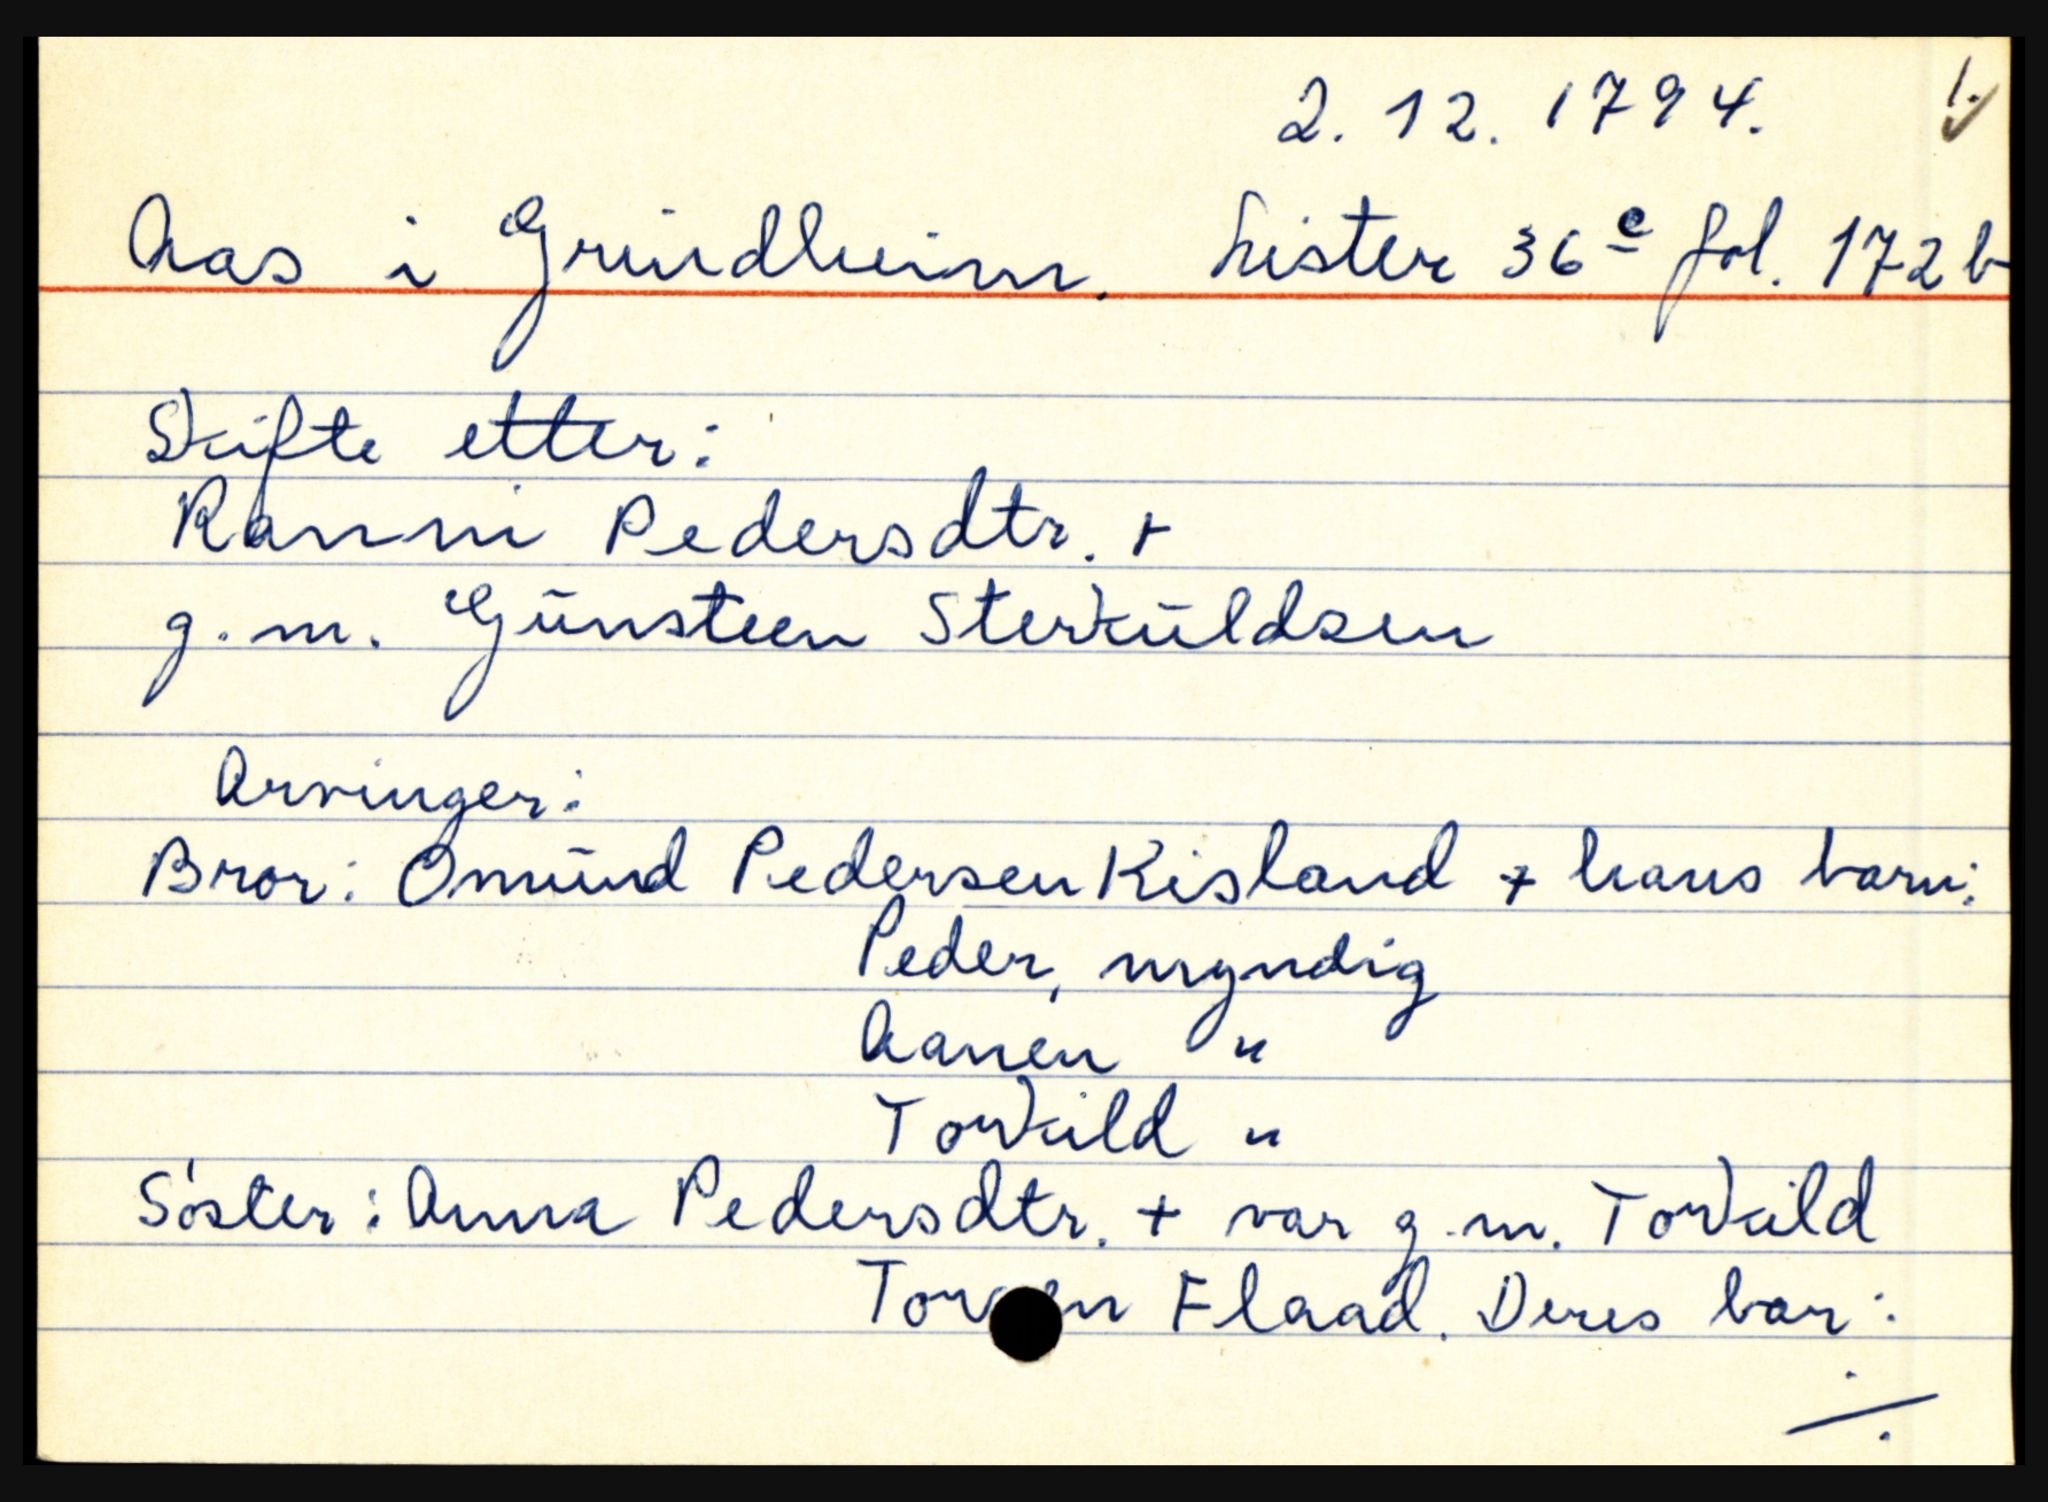 2. 12. 1794. 1.
Aas i Grindheim. Lister 36c fol. 172b
Skifte etter:
Ranni Pedersdtr. +
g.m. Gūnsteen Sterkūldsen
Arvinger:
Bror: Omūnd Pedersen Kisland + hans barn:
Peder, myndig
Aanen "
Torkild "
Söster: Anna Pedersdtr. + var g.m. Torkild
Flaad. Deres bar:
./.